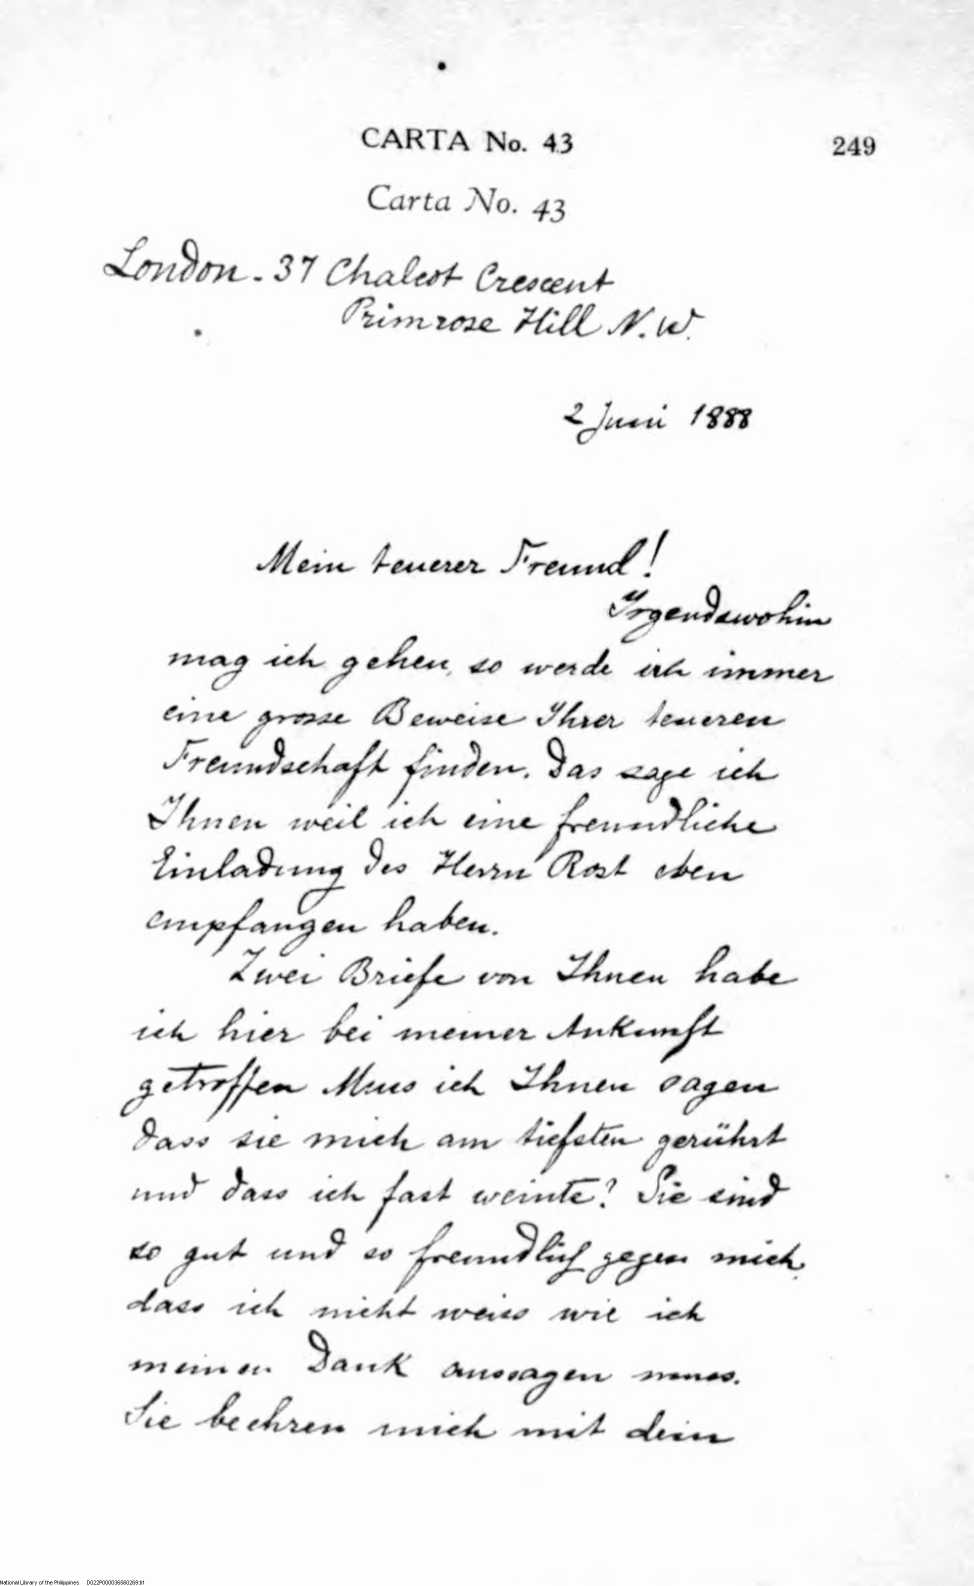 CARTA No. 43
249
Carta No. 43
London - 37 Chalcot Crescent
Primrose Hill N. W.
2 Juni 1888
Mein teuerer Freund!
Irgendswohin
mag ich gehen, so werde ich immer
eine grosse Beweise Ihrer teueren
Freundschaft finden. Das sage ich
Ihnen weil ich eine freundliche
Einladung des Herrn Rost eben
empfangen haben.
Zwei Briefe von Ihnen habe
ich hier bei meiner Ankunft
getroffen Mus ich Ihnen sagen
dass sie mich am tiefsten gerührt
und dass ich fast weinte? Sie sind
so gut und so freundlich gegen mich,
dass ich nicht weiss wie ich
meinen Dank aussagen muss.
Sie beehren mich mit dein
National Library of the Philippines